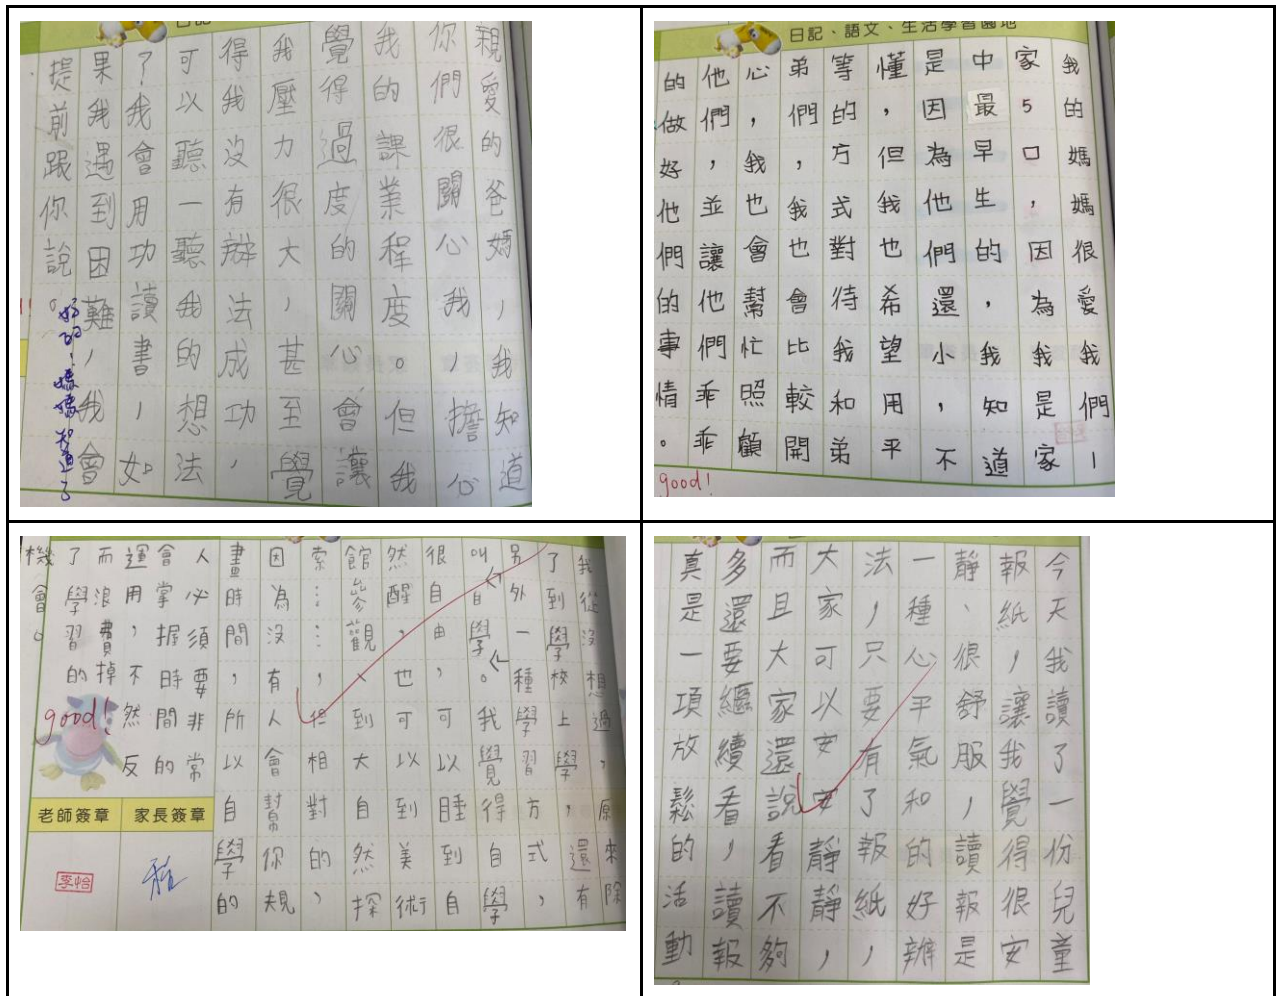 日記
親愛的爸媽，我知道
你們很關心我，擔心
我的課業程度。但我
覺得過度的關心會讓
我壓力很大，甚至覺
得我沒有辦法成功，
可以聽一聽我的想法
？我會用功讀書，如
果我遇到困難，我會
提前跟你說。
好的！媽媽知道了
日記、語文、生活學習園地
我的媽媽很愛我們一
家5口，因為我是家
中最早生的，我知道
是因為他們還小，不
懂，但我也希望用平
等的方式對待我和弟
弟們，我也會比較開
心，我也會幫忙照顧
他們，並讓他們乖乖
的做好他們的事情。
good!
我從沒想過，原來除
了到學校上學，還有
另外一種學習方式，
叫「自學」。我覺得自學
很自由，可以睡到自
然醒，也可以到美術
館參觀、到大自然探
索……，但相對的，
因為沒有人會幫你規
畫時間，所以自學的
人必須要非常
會掌握時間的
運用，不然反
而浪費掉
了學習的
機會。
good!
老師簽章
家長簽章
今天我讀了一份兒童
報紙，讓我覺得很安
靜、很舒服，讀報是
一種心平氣和的好辦
法，只要有了報紙，
大家可以安安靜靜，
而且大家還說看不夠
多還要繼續看，讀報
真是一項放鬆的活動